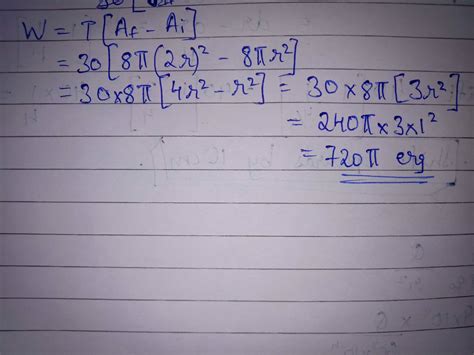 W = T[Af - Ai]
= 30[8π(2r)² - 8πr²]
= 30×8π[4r² - r²] = 30×8π[3r²]
= 240π×3×1²
= 720π erg